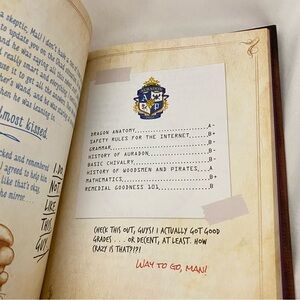 a skeptic, Mal! I don't
to update you on the
and he was saying
really smart and
use it to get
wand, and
when he was leaning in
lmost kissed.
cked and remembered
agreed to help his
like that okay.
he mirror.
I DO
NOT
LIKE
THIS
GUY.
AURADON
A P
DRAGON ANATOMY A-
SAFETY RULES FOR THE INTERNET B+
GRAMMAR B+
HISTORY OF AURADON B-
BASIC CHIVALRY B-
HISTORY OF WOODSMEN AND PIRATES A-
MATHEMATICS B+
REMEDIAL GOODNESS 101 B
CHECK THIS OUT, GUYS! I ACTUALLY GOT GOOD
GRADES . . . OR DECENT, AT LEAST. HOW
CRAZY IS THAT?!?!
WAY TO GO, MAN!